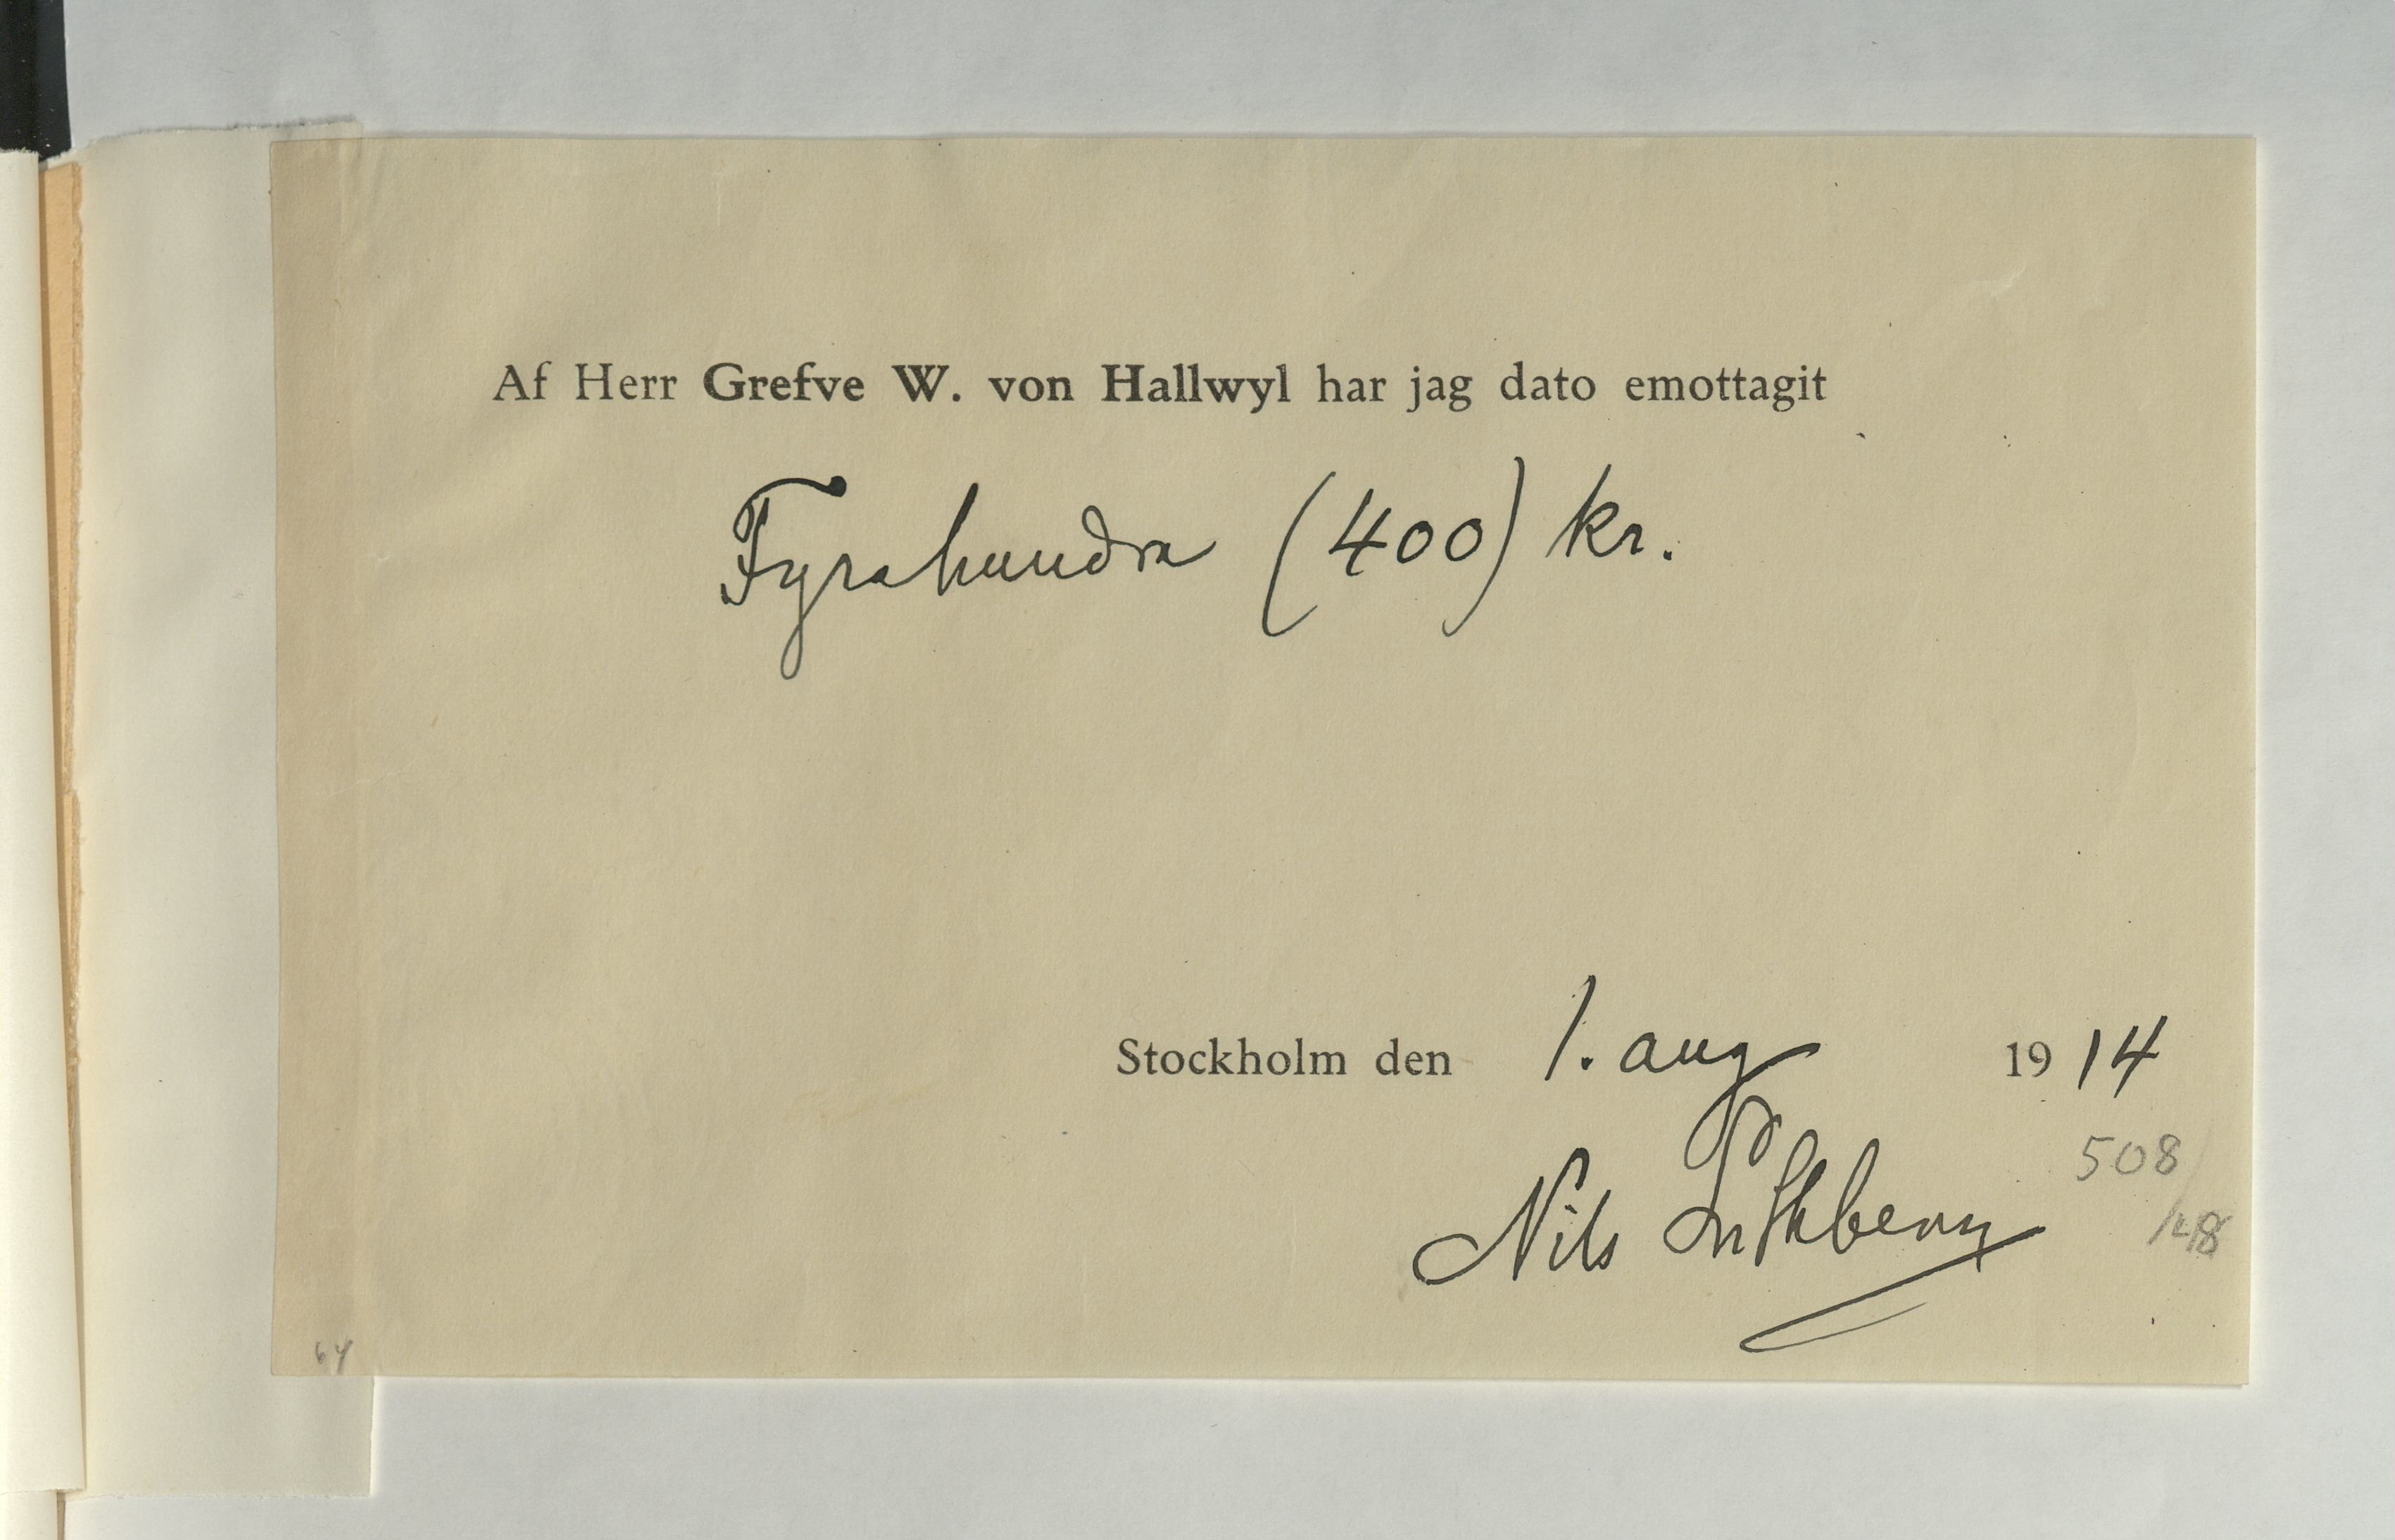 Af Herr Grefve W. von Hallwyl har jag dato emottagit
Fyrahundra (400) kr.
Stockholm den 1. aug 1914
Nils Lithberg
508
64